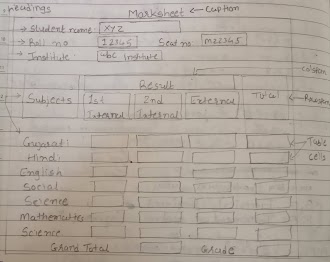 headings
Marksheet ← Caption
→ Student name: XYZ
→ Roll no 12345 Seat no M22345
→ Institute: abc Institute
Result
Subjects 1st Internal 2nd Internal External Total
Gujarati
Hindi
English
Social
Science
Mathematics
Science
Grand Total Grade
Table
Cells